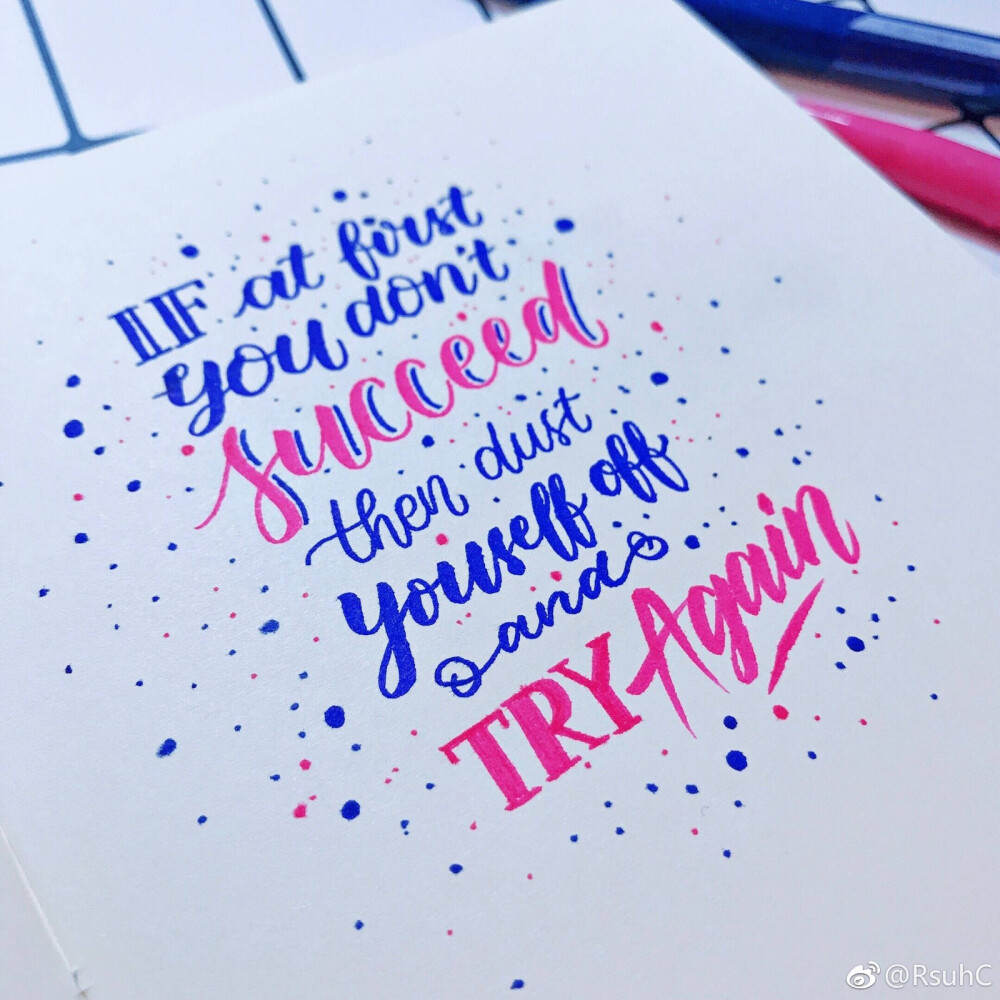 IF at first
you don't
succeed
then dust
youself off
and
TRY Again
@RsuhC